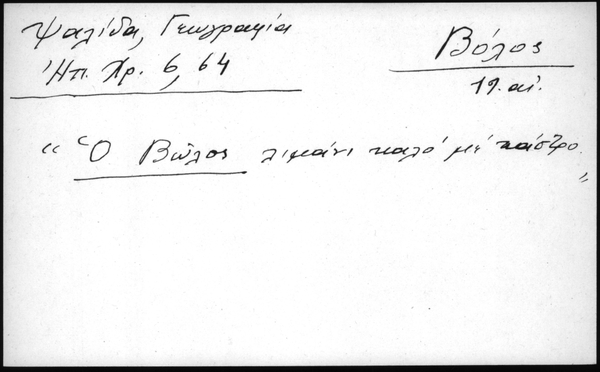 Ψαλίδα, Γεωγραφία
Ἠπ. Χρ. 6, 64
Βόλος
19. αἰ.
“ Ὁ Βῶλος λιμάνι καλό μέ κάστρο. ”